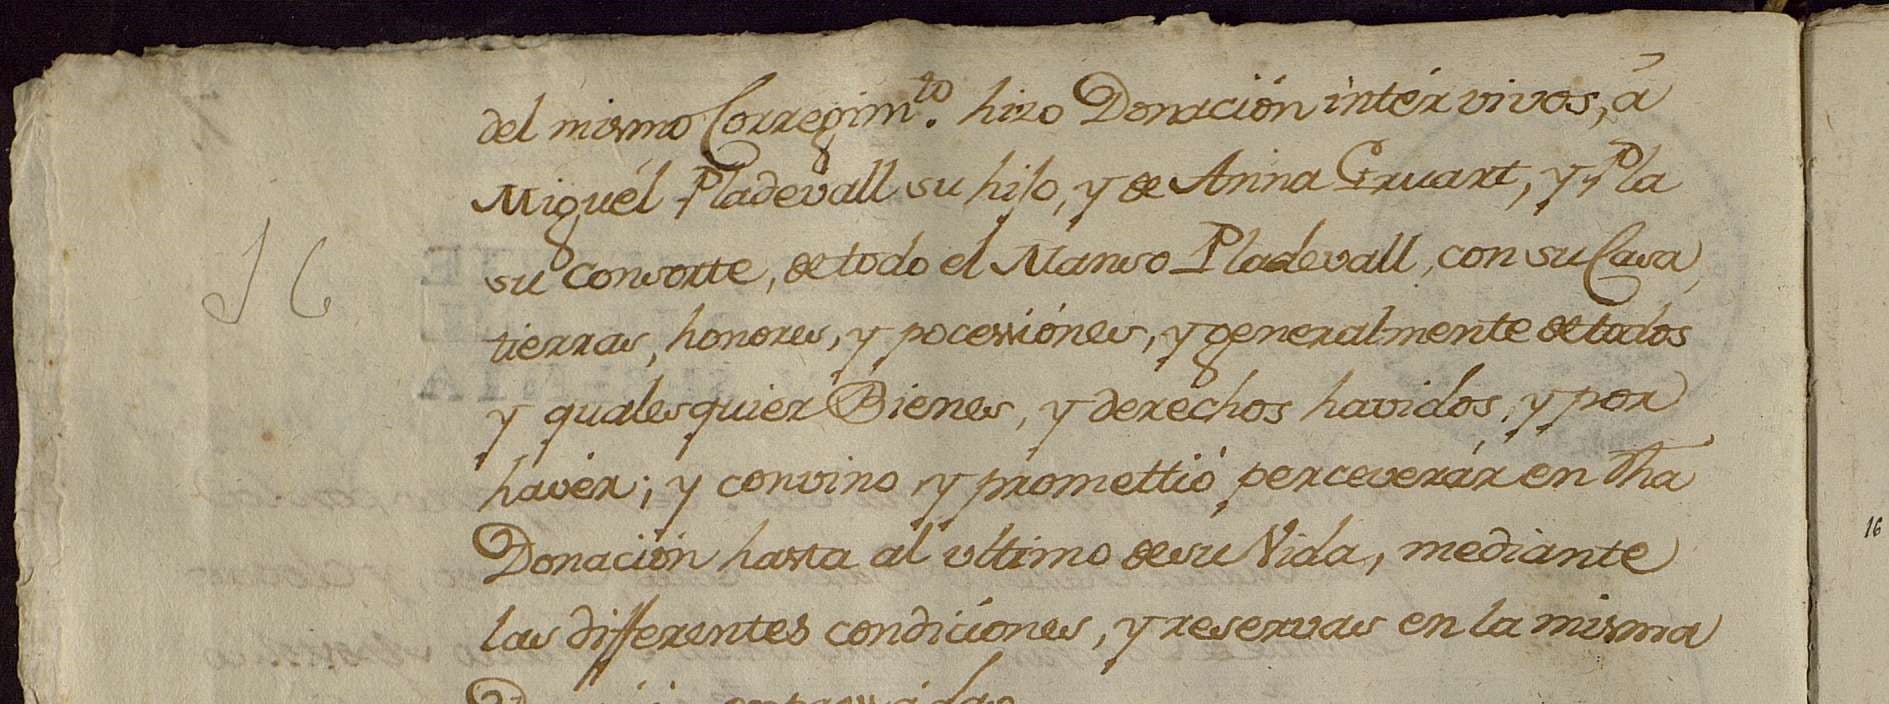 del mismo Corregim.to hizo Donación intér vivos, á
Miguél Pladevall su hijo, y de Anna Gruart, y Pla
su Consorte, de todo el Manso Pladevall, con su Casa,
tierras, honores, y pocessiónes, y generalmente de todos
y qualesquier Bienes, y derechos havidos, y por
havér; y convino y promettió perceverár en dha
Donación hasta al ultimo de su Vida, mediante
las differentes condiciónes, y reservas en la misma
16
16